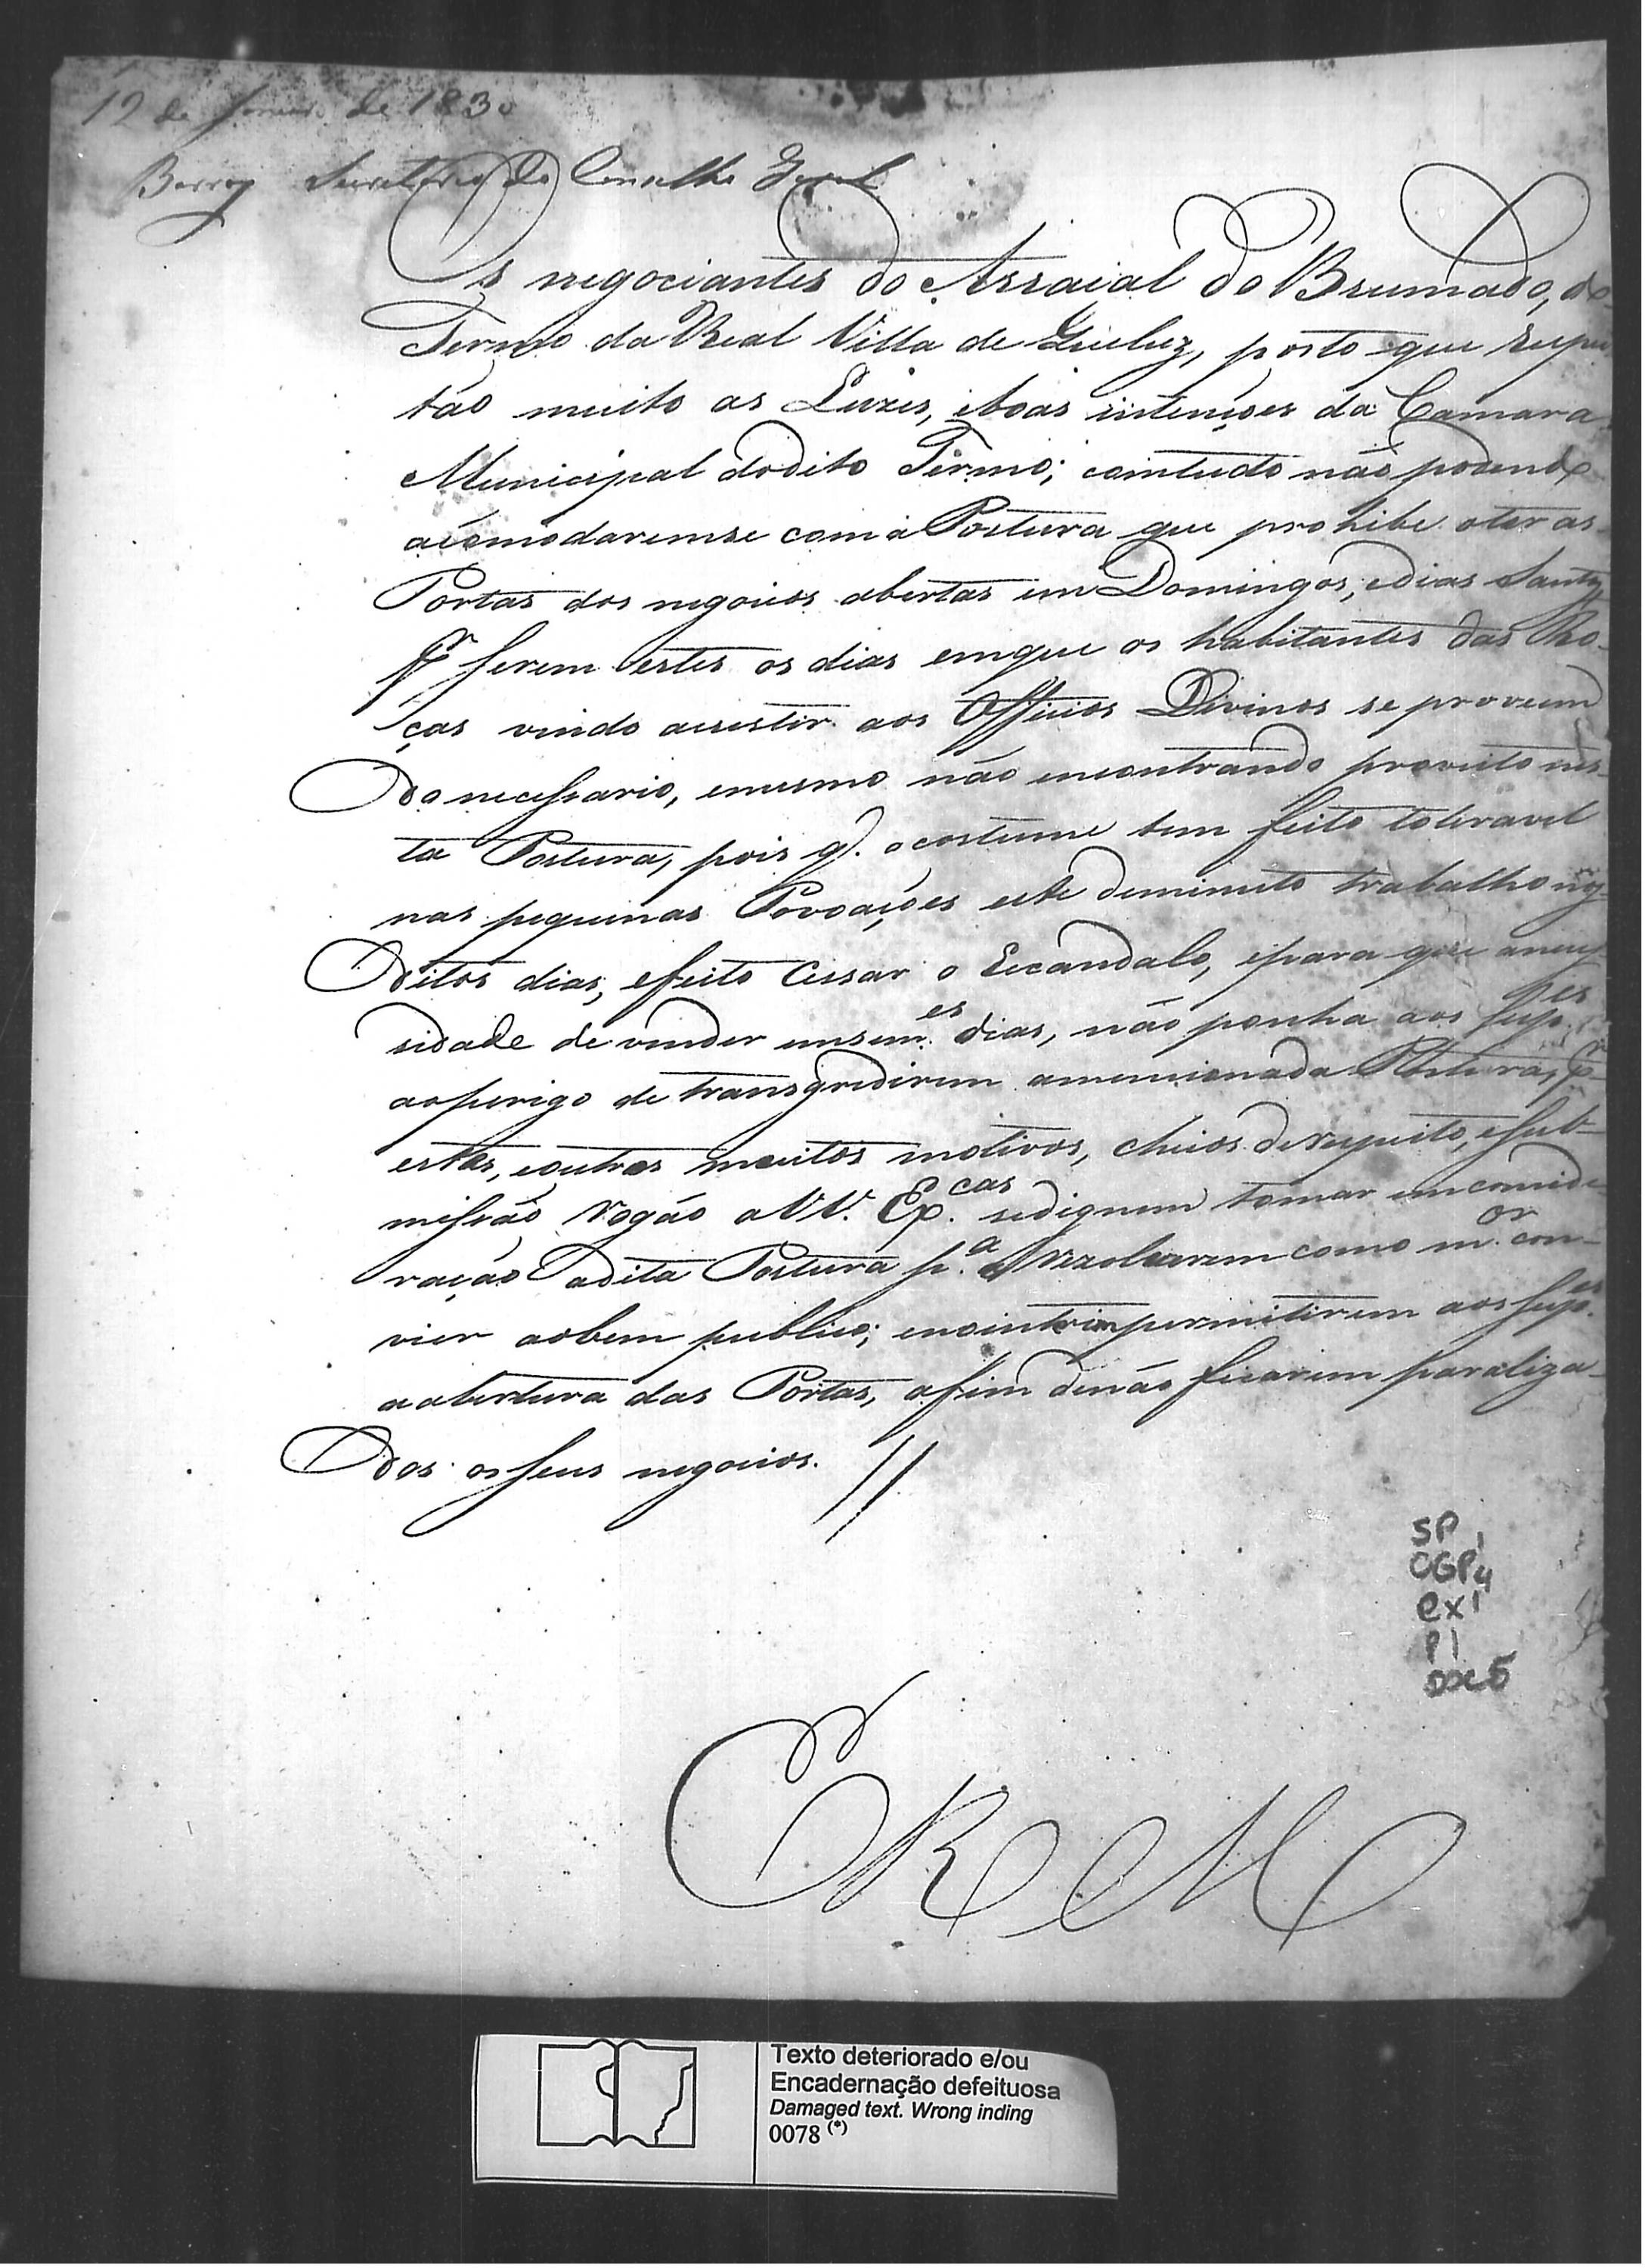 12 de Janeiro de 1830
Barros Secretario do Conselho Geral
Os negociantes do Arraial do Brumado, do
Termo da Real Villa de Queluz, posto que respei
tão muito as Luzes, eboas intençoes da Camara
Municipal dodito Termo; comtudo não podendo
acomodaremse com a Postura que prohibe oter as
Portas dos negocios abertas em Domingos, edias Santos,
pr serem estes os dias emque os habitantes das Ro-
ças vindo assistir aos Officios Divinos se proveem
do necessario, emesmo não encontrando proveito nes-
ta Postura, pois q. ocostume tem feito toleravel
nas pequenas Povoações este deminuto trabalho nos
ditos dias, efeito cessar o Escandalo, epara que aneces
sidade de vender emsem.es dias, não ponha aos sup.es
aoperigo de transgredirem amencionada Postura, pr
estes, eoutros muitos motivos, cheios derespeito, esub-
missão rogão a VV. Ex.cas sedignem tomar emconside
ração adita Postura p.a rezolverem como m.or con-
vier aobem publico; enointrim permitirem aos sup.es
aabertura das Portas, afim denão ficarem paraliza-
dos os seus negocios. //
SP 1
CGP4
Cx1
P1
Doc5
E R M
Texto deteriorado e/ou
Encadernação defeituosa
Damaged text. Wrong inding
0078 (*)